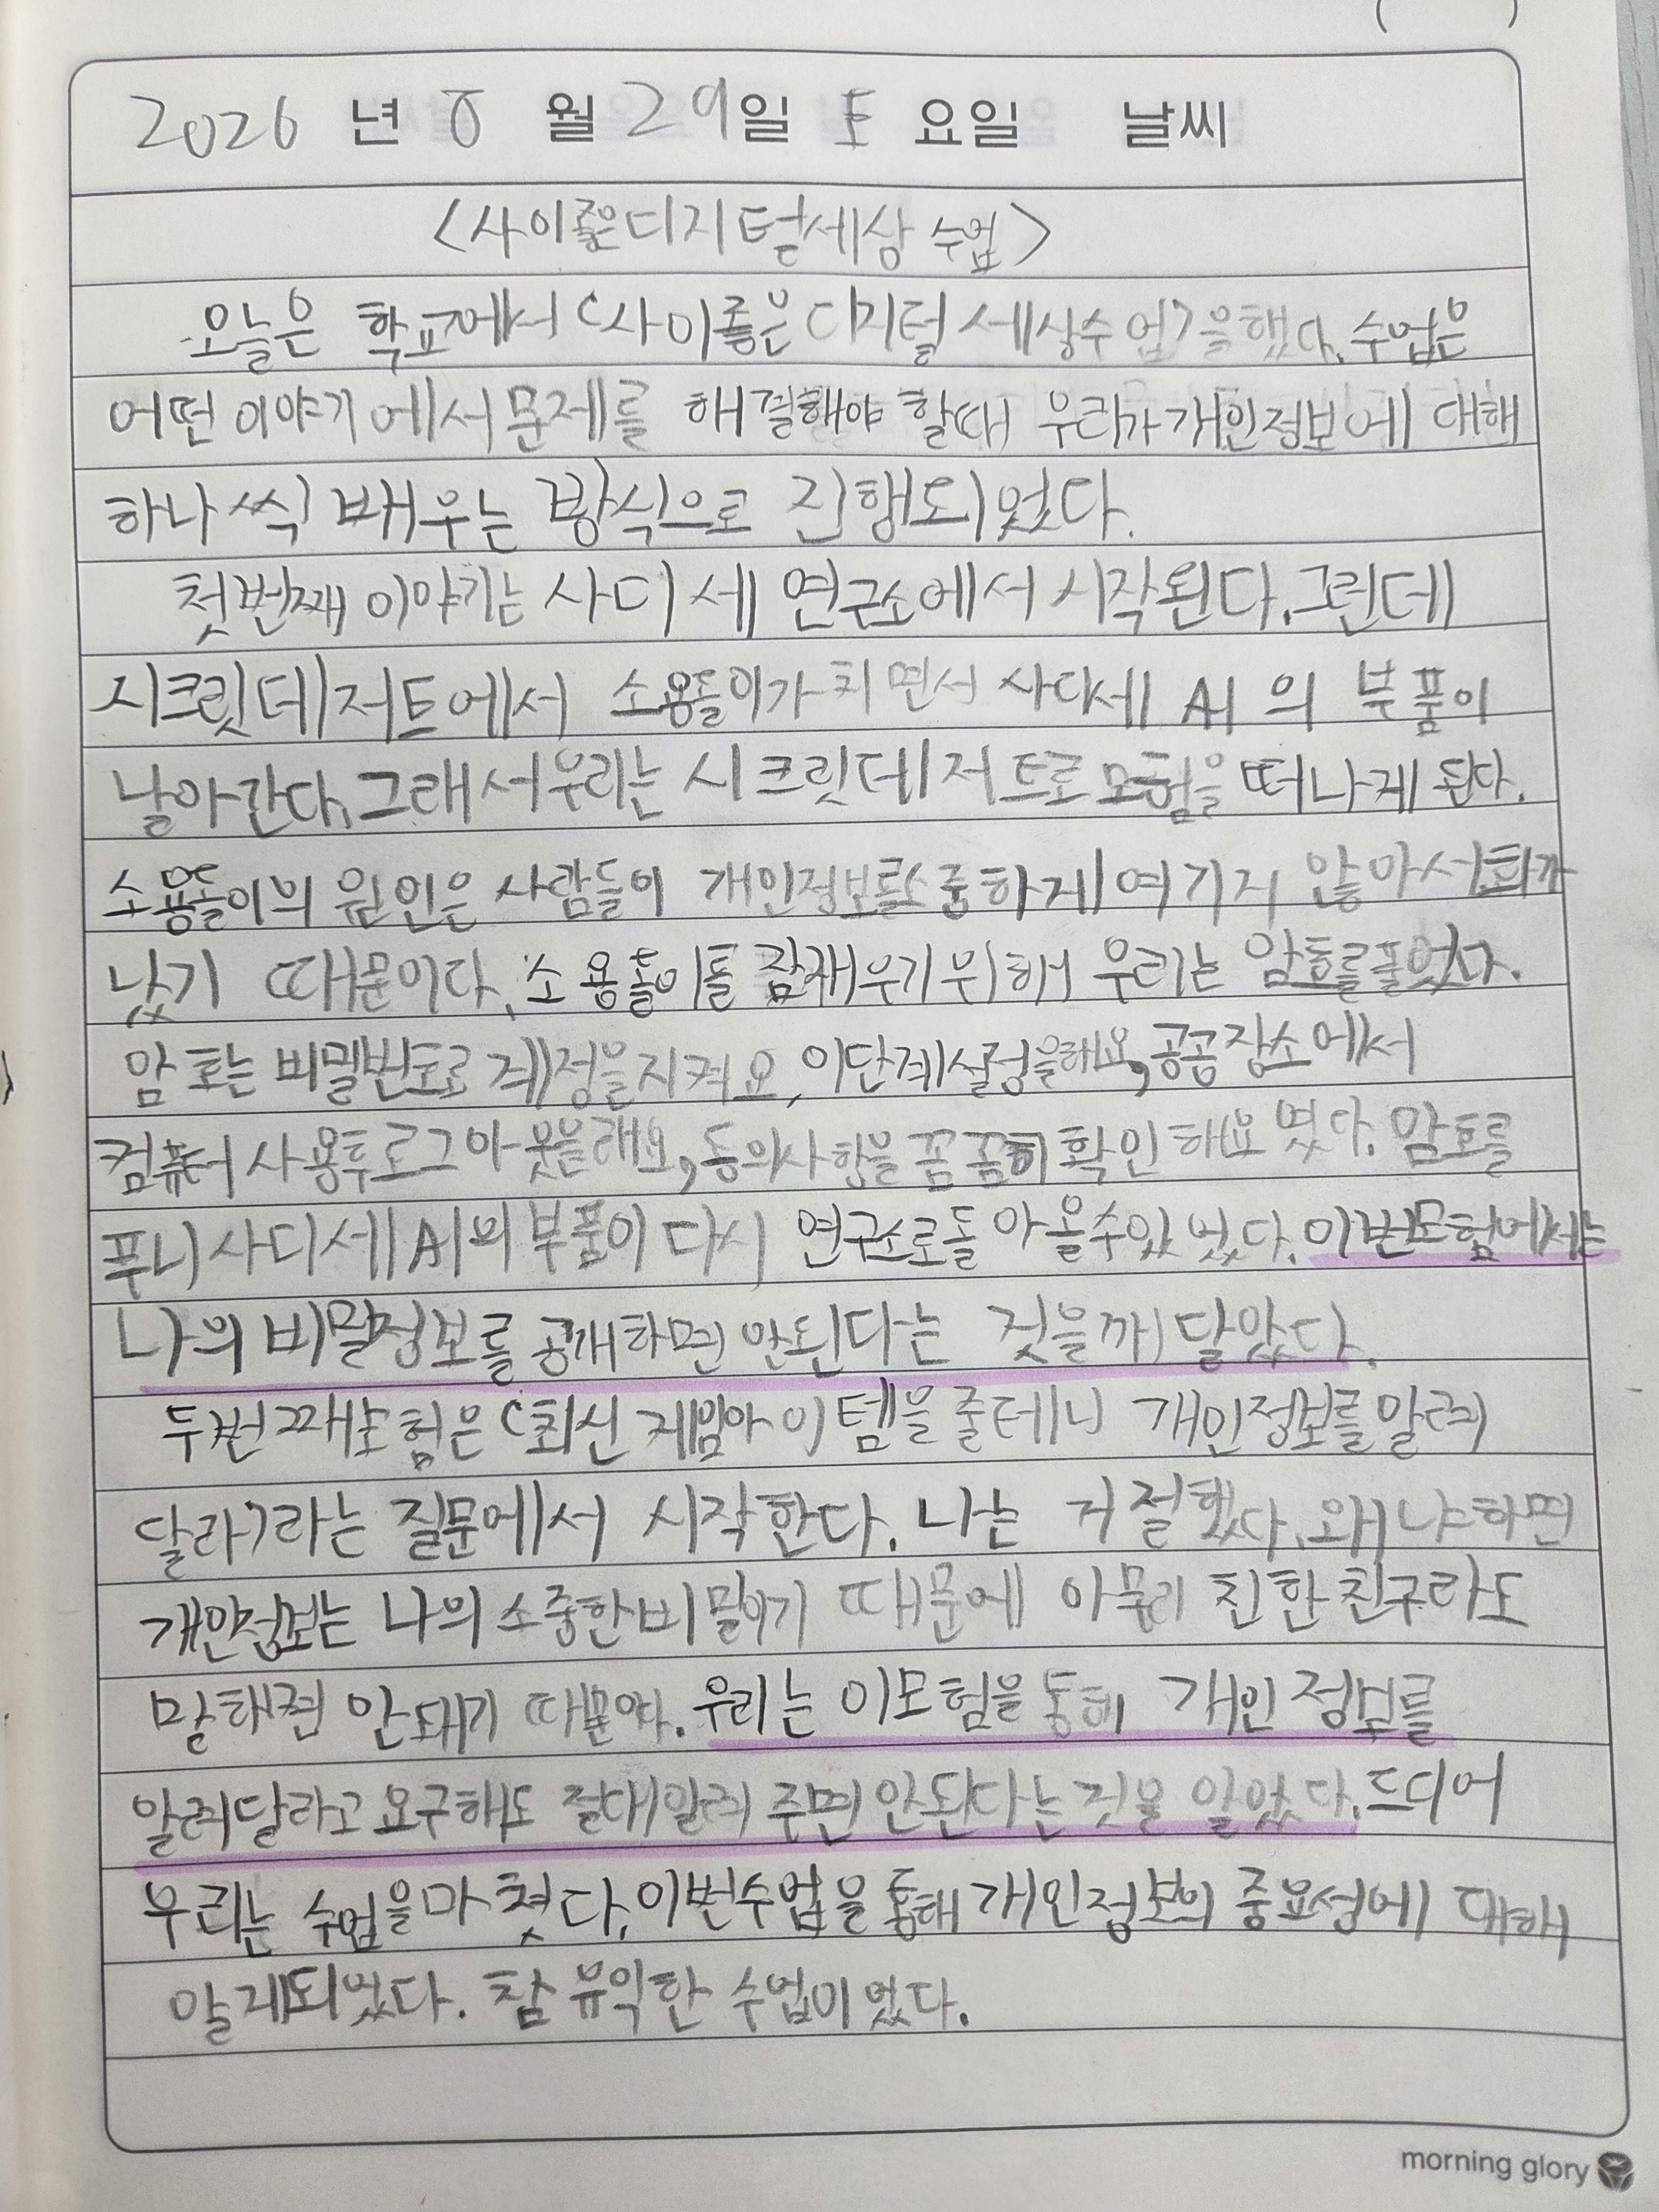 2026 년 8 월 29일 토 요일 날씨
<사이좋은디지털세상 수업>
오늘은 학교에서 <사이좋은 디지털 세상수업>을 했다. 수업은
어떤 이야기에서 문제를 해결해야 할때 우리가 개인정보에 대해
하나씩 배우는 방식으로 진행되었다.
첫번째 이야기는 사디세 연구소에서 시작된다. 그런데
시크릿데저트에서 소용돌이가 치면서 사디세 AI의 부품이
날아간다. 그래서 우리는 시크릿데저트로 모험을 떠나게 된다.
소용돌이의 원인은 사람들이 개인정보를 소중하게 여기지 않아서 화가
났기 때문이다. 소용돌이를 잠재우기 위해 우리는 암호를 풀었다.
암호는 비밀번호로 계정을 지켜요, 이단계 설정을해요, 공공장소에서
컴퓨터 사용후 로그아웃을 해요, 동의사항을 꼼꼼히 확인해요 였다. 암호를
푸니 사디세 AI의 부품이 다시 연구소로 돌아올수있었다. 이번모험에서는
나의 비밀정보를 공개하면 안된다는 것을 깨달았다.
두번째모험은 <최신 게임아이템을 줄테니 개인정보를 알려
달라>라는 질문에서 시작한다. 나는 거절했다. 왜냐하면
개인정보는 나의 소중한 비밀이기 때문에 아무리 친한 친구라도
말해선 안돼기 때문이다. 우리는 이모험을 통해 개인 정보를
알려달라고 요구해도 절대 알려 주면 안된다는 것을 알았다. 드디어
우리는 수업을 마쳤다. 이번수업을 통해 개인정보의 중요성에 대해
알게되었다. 참 유익한 수업이었다.
morning glory